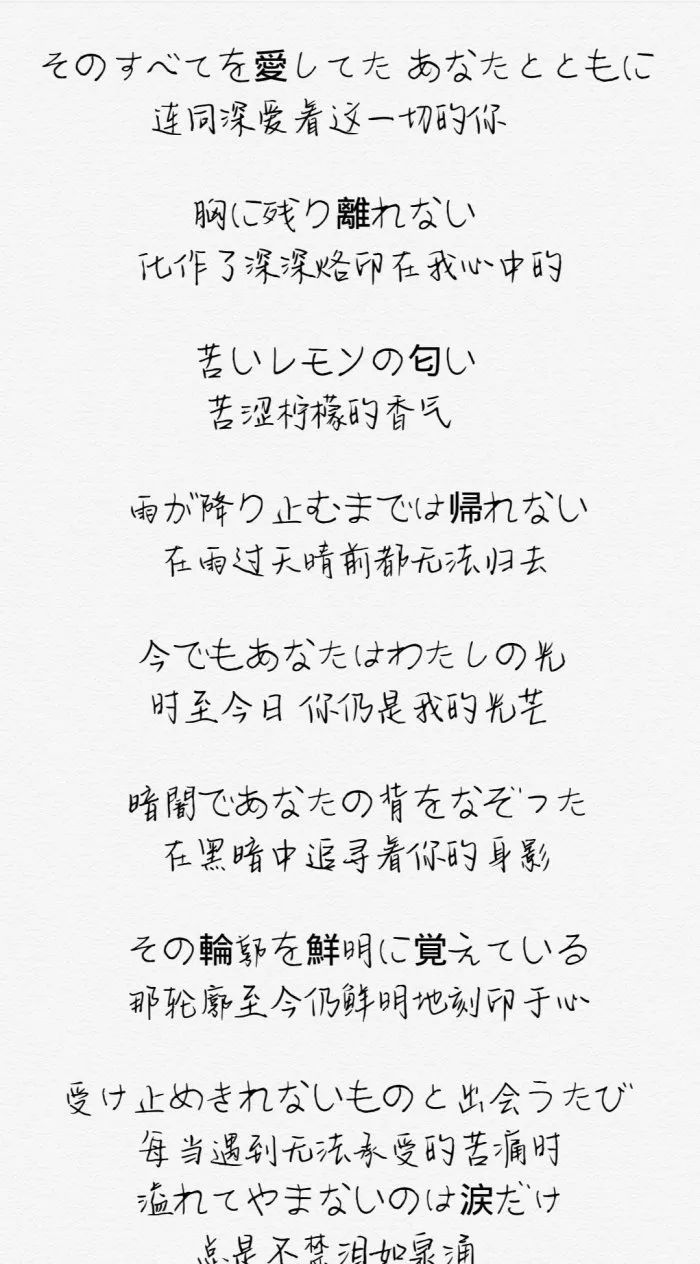 そのすべてを愛してた あなたとともに
连同深爱着这一切的你
胸に残り離れない
化作了深深烙印在我心中的
苦いレモンの匂い
苦涩柠檬的香气
雨が降り止むまでは帰れない
在雨过天晴前都无法归去
今でもあなたはわたしの光
时至今日 你仍是我的光芒
暗闇であなたの背をなぞった
在黑暗中追寻着你的身影
その輪郭を鮮明に覚えている
那轮廓至今仍鲜明地刻印于心
受け止めきれないものと出会うたび
每当遇到无法承受的苦痛时
溢れてやまないのは涙だけ
总是不禁泪如泉涌